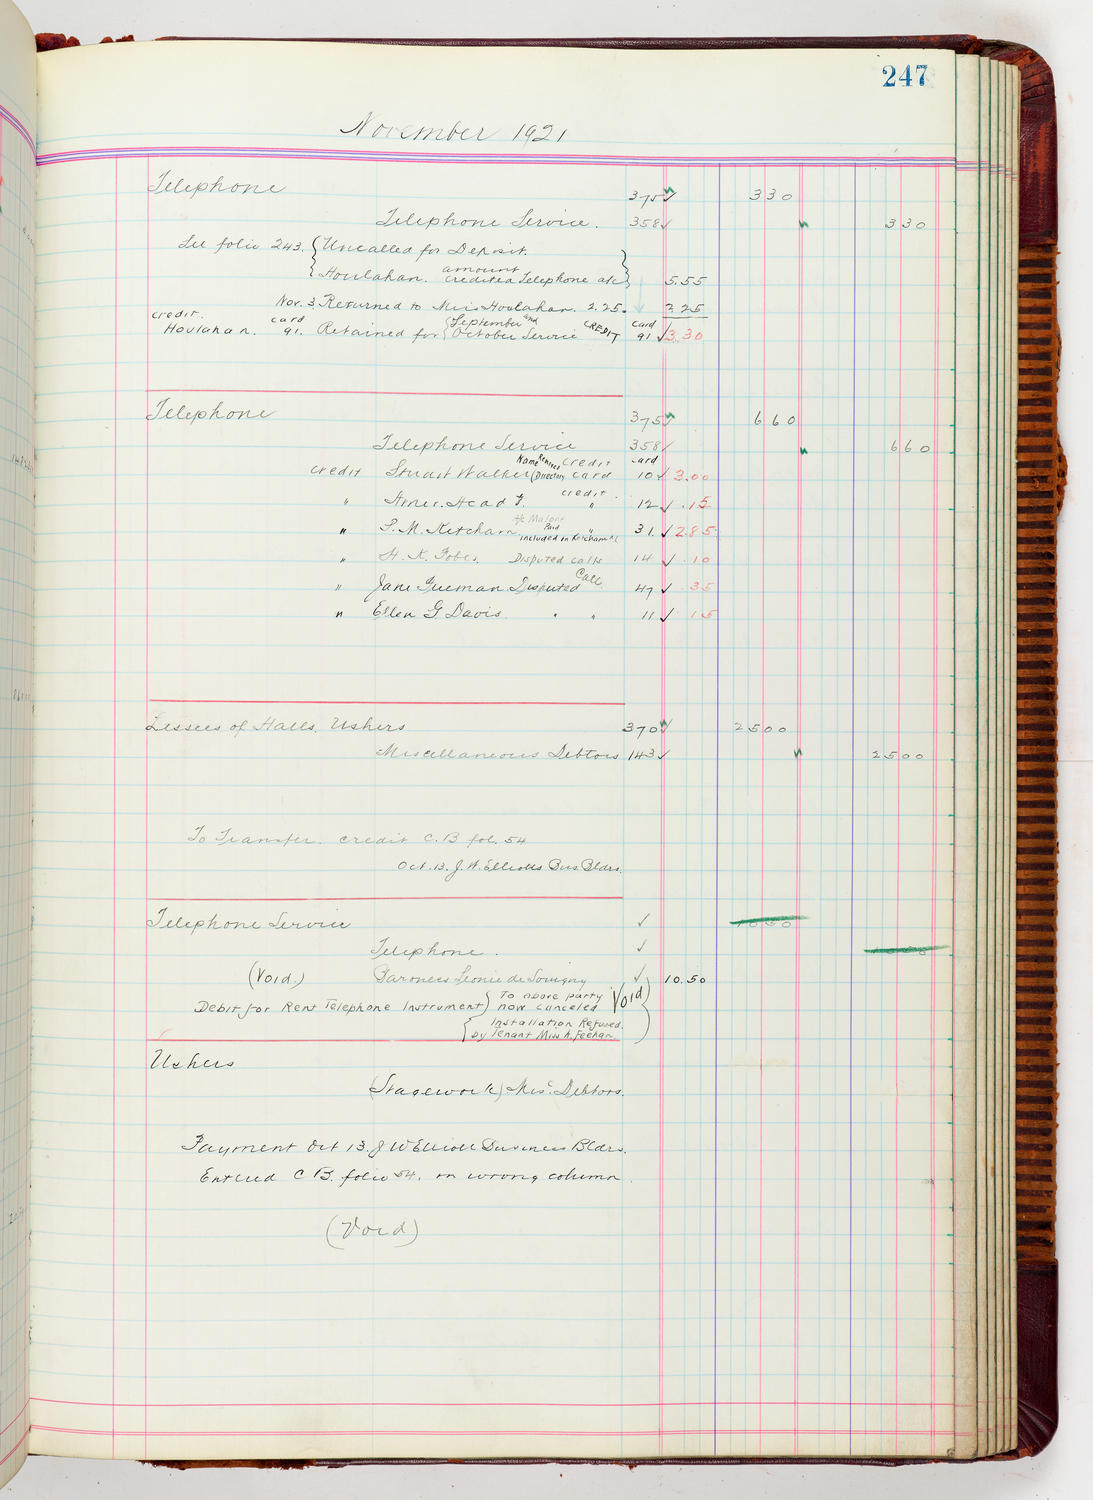 247
November 1921
Telephone 375 330
Telephone Service. 358 330
See folio 243. Uncalled for Deposit.
Houlahan. amount credited Telephone a/c 5.55
Nov. 3. Returned to Miss Houlahan. 2.25. 2 25
credit. Houlahan. card 91. Retained for September and October Service CREDIT card 91 3.30
Telephone 375 660
Telephone Service 358 660
credit Stuart Walker Name Directory credit card card 10 3.00
" Amer. Acad F. credit " 12 .15
" P. M. Ketcham Malone Paid included in Ketcham " 31. 2.85
" H. K. Fobes. Disputed calls 14 .10
" Jane Disputed Call 47 .35
" Ellen G. Davis. " " 11 .15
Lessees of Halls, Ushers 370 2500
Miscellaneous Debtors 143 2500
To Transfer. credit C. B. fol. 54
Oct. 13. J. W. Elliotts Bus. Bldrs.
Telephone Service 1050
Telephone. 1050
(Void.) Baroness Leonie de 10.50
Debit for Rent Telephone Instrument To above party now canceled Void
Installation Refused.
by Tenant Miss A. Feehan
Ushers
(Stagework) Misc. Debtors.
Payment Oct 13. J W Elliott Business Bldrs.
Entered C B. folio 54. in wrong column.
(Void)